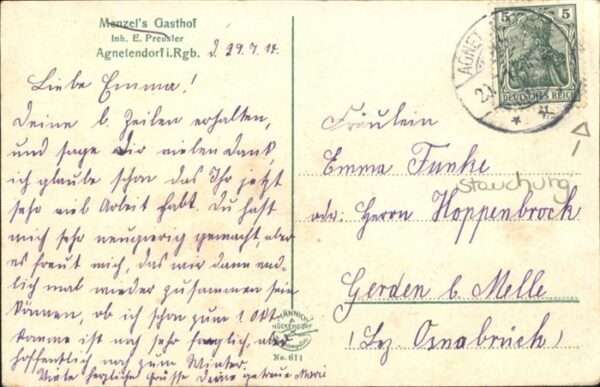 Menzel's Gasthof
Inh. E. Preusler
Agnetendorf i. Rgb.
Liebe Emma!
Deine l. Zeilen erhalten,
und sage Dir vielen Dank,
ich glaube schon das Ihr jetzt
sehr viel Arbeit habt. Du hast
mich sehr neugierig gemacht, aber
es freut mich, das wir dann end-
lich mal wieder zusammen sein
können, ob ich schon zum 1 Okt.
komme ist noch sehr fraglich, aber
hoffentlich noch zum Winter.
Viele herzliche Grüsse Deine getreue Marie
5 5
DEUTSCHES REICH
AGNET
Fräulein
Emma Funke
Stauchung
adr. Herrn Hoppenbrock
Gerden b. Melle
(Bez. Osnabrück)
No. 611